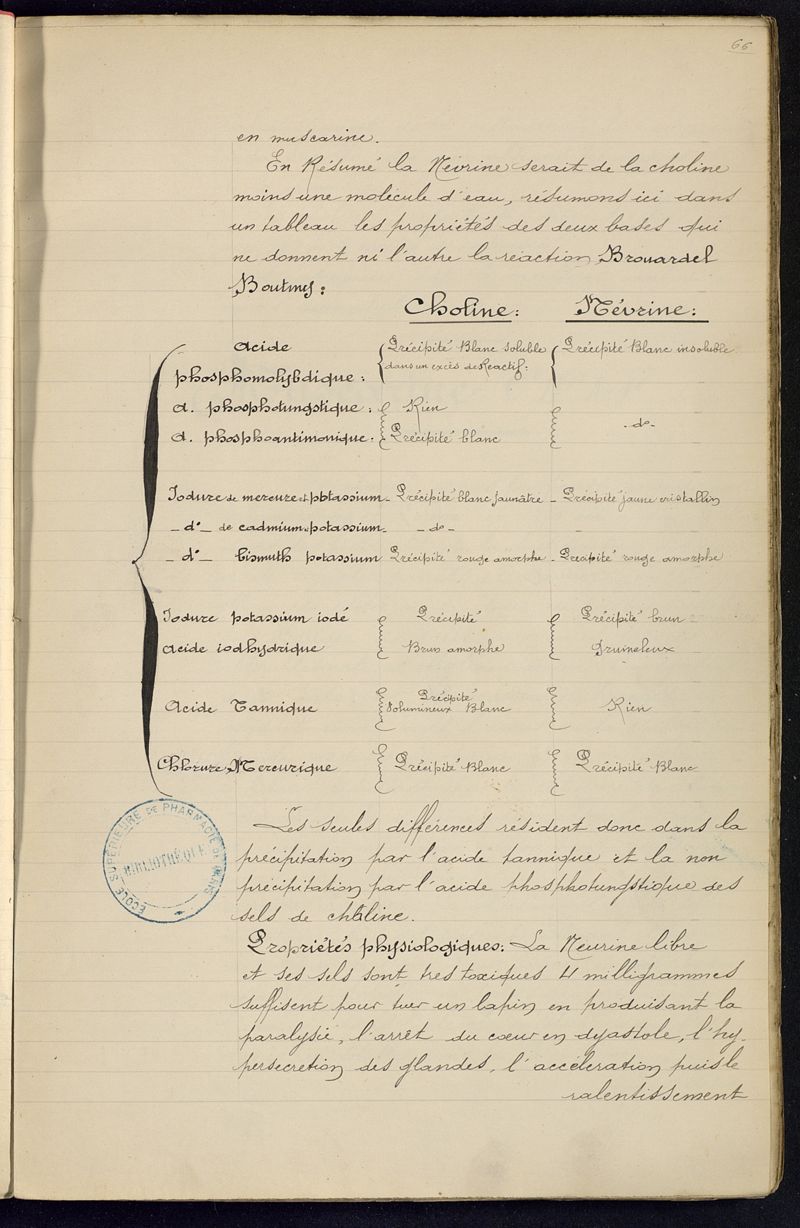 66
en muscarine.
En Résumé la Névrine serait de la choline
moins une molécule d'eau, résumons ici dans
un tableau les propriétés des deux bases qui
ne donnent ni l'autre la réaction Brouardel
Boutmy:
Choline: Névrine:
acide Précipité Blanc soluble Précipité Blanc insoluble
phosphomolybdique: dans un excès de Réactif.
a. phosphotungstique: Rien
a. phosphoantimonique. Précipité blanc -do-
Iodure de mercure et potassium - Précipité blanc jaunâtre - Précipité jaune cristallin
- do - de cadmium potassium - - do - -
- do - bismuth potassium Précipité rouge amorphe - Précipité rouge amorphe
Iodure potassium iodé Précipité Précipité brun
acide iodhydrique Brun amorphe Grumeleux
Acide Tannique Précipité Volumineux Blanc Rien
Chlorure Mercurique Précipité Blanc Précipité Blanc
Les seules différences résident donc dans la
précipitation par l'acide tannique et la non
précipitation par l'acide phosphotungstique des
sels de choline.
Propriétés physiologiques: La Neurine libre
et ses sels sont tres toxiques 4 milligrammes
suffisent pour tuer un lapin en produisant la
paralysie, l'arrêt du cœur en dyastole, l'hy-
persecretion des glandes, l'accéleration puis le
ralentissement
ÉCOLE SUPÉRIEURE DE PHARMACIE DE PARIS
BIBLIOTHÈQUE